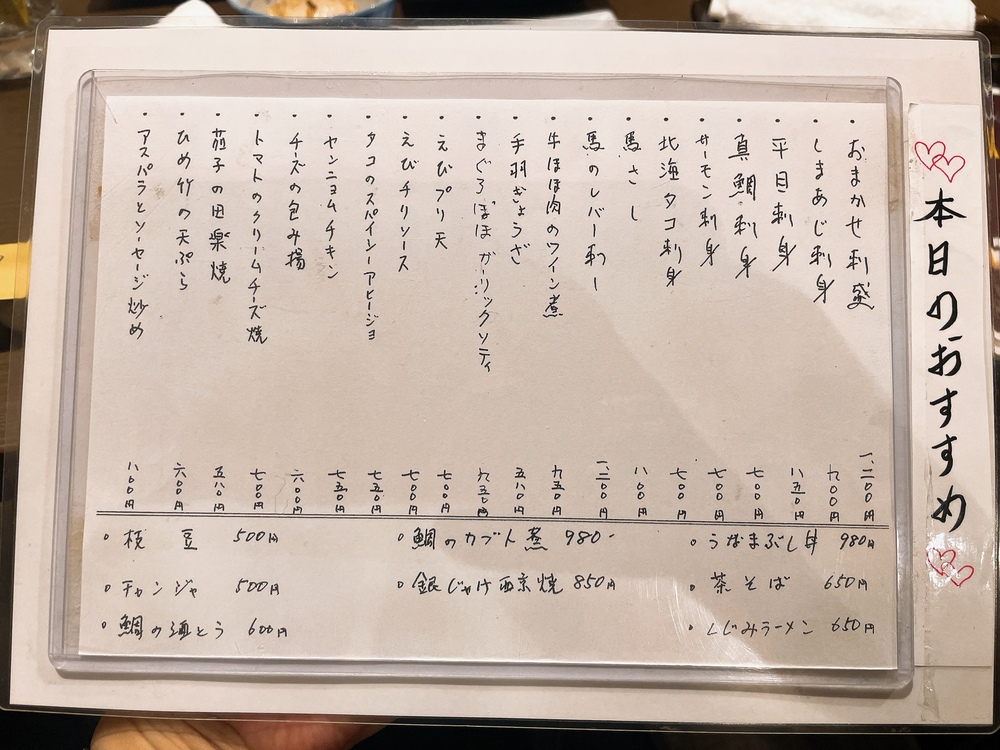 本日のおすすめ
・おまかせ刺盛 一、二〇〇円
・しまあじ刺身 九〇〇円
・平目刺身 八五〇円
・真鯛刺身 七〇〇円
・サーモン刺身 七〇〇円
・北海タコ刺身 七〇〇円
・馬さし 八〇〇円
・馬のレバー刺し 一、二〇〇円
・牛ほほ肉のワイン煮 九五〇円
・手羽ぎょうざ 五八〇円
・まぐろほほガーリックソティ 九五〇円
・えびプリ天 七〇〇円
・えびチリソース 七〇〇円
・タコのスパイシーアヒージョ 七五〇円
・ヤンニョムチキン 七五〇円
・チーズの包み揚 六〇〇円
・トマトのクリームチーズ焼 七〇〇円
・茄子の田楽焼 五八〇円
・ひめ竹の天ぷら 六〇〇円
・アスパラとソーセージ炒め 八〇〇円
・枝豆 500円
・チャンジャ 500円
・鯛の酒とう 600円
・鯛のカブト蒸 980-
・銀じゃけ西京焼 850円
・うなまぶし丼 980円
・茶そば 650円
・しじみラーメン 650円